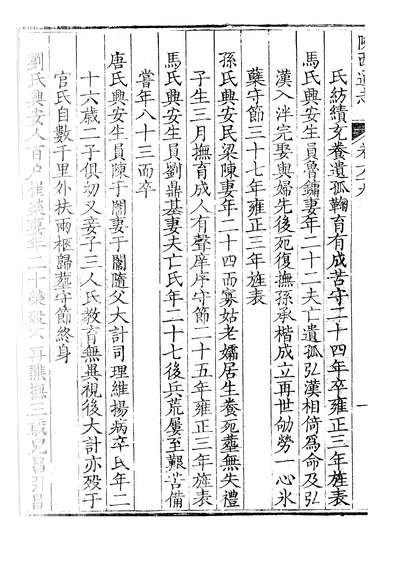 陝西通志 卷六九
氏紡績充養遺孤鞠育有成苦守二十四年卒雍正三年旌表
馬氏興安生員魯鏽妻年二十二夫亡遺孤弘漢相倚爲命及弘
漢入泮完娶與婦先後死復撫孫承楷成立再世劬勞一心氷
蘗守節三十七年雍正三年旌表
孫氏興安民梁陳妻年二十四而寡姑老孀居生養死塟無失禮
子生三月撫育成人有聲庠序守節二十五年雍正三年旌表
馬氏興安生員劉鼎基妻夫亡氏年二十七後兵荒屢至艱苦備
嘗年八十三而卒
唐氏興安生員陳于闇妻于闇隨父大計司理維揚病卒氏年二
十六歲二子俱幼又妾子三人氏教育無異視後大計亦殁于
官氏自數千里外扶兩柩歸塟守節終身
劉氏興安人百户 妻年二十 殁 再醮撫三歲兒昌引昌